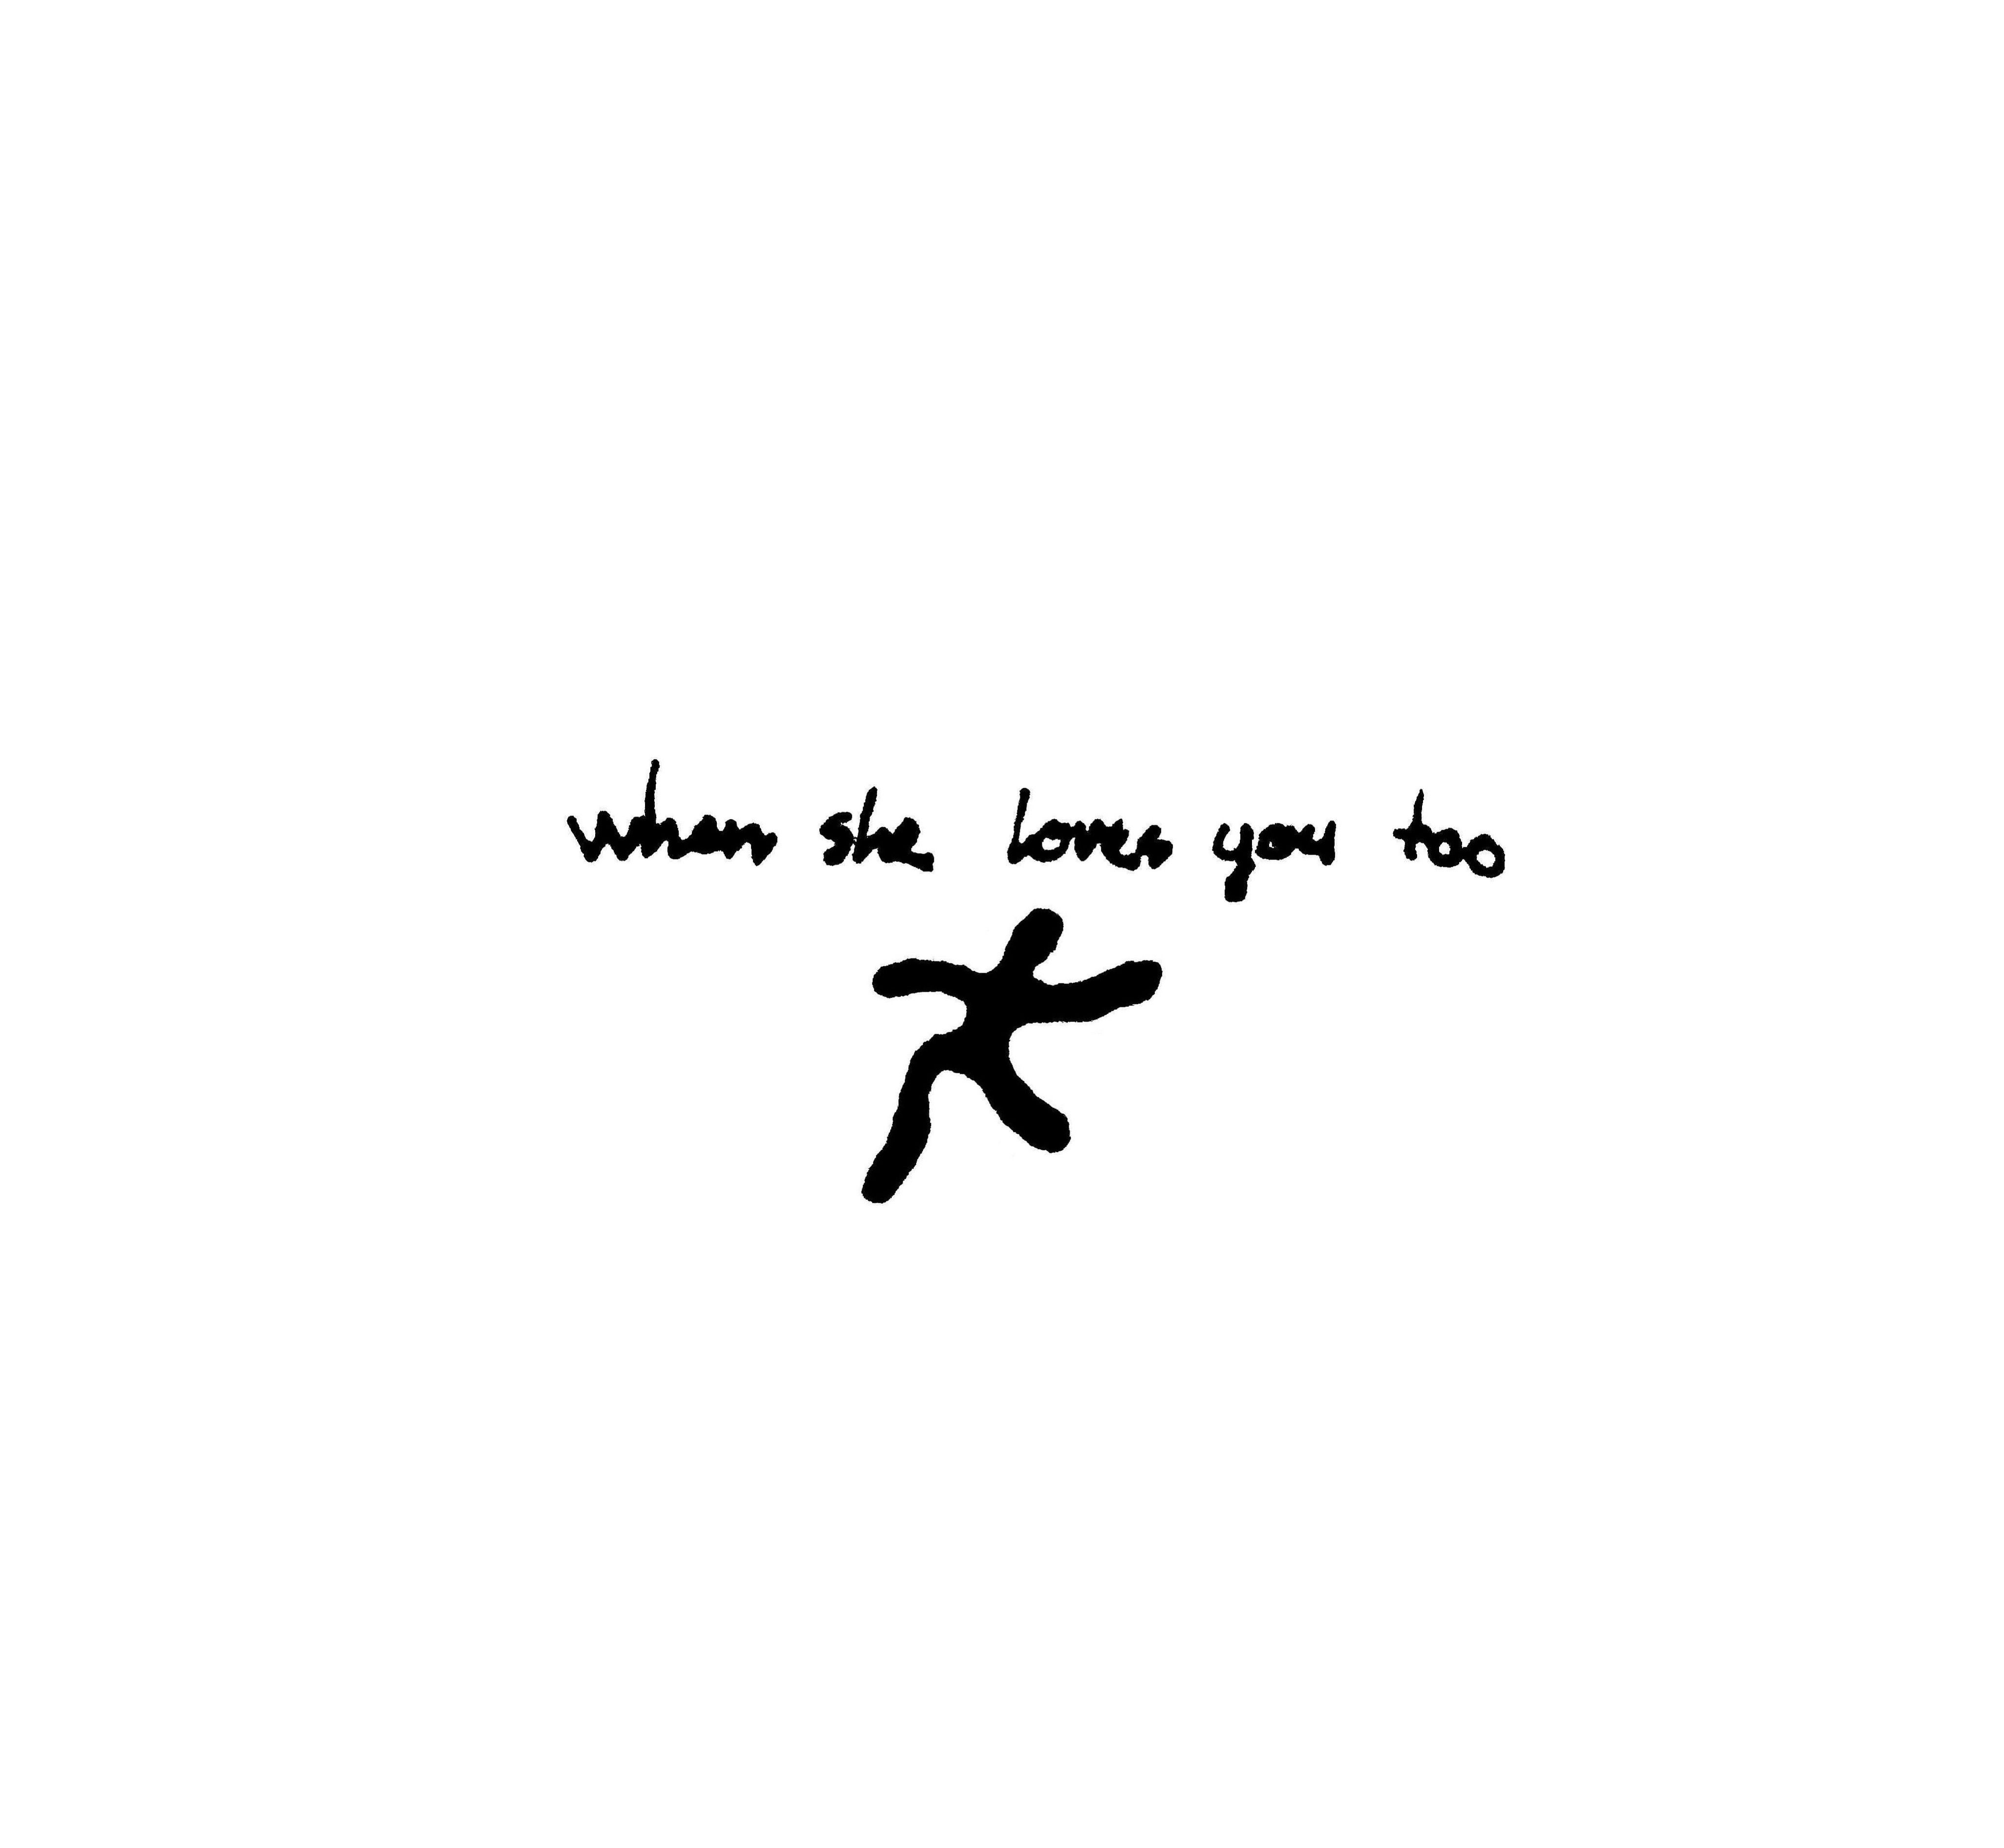 when she loves you too